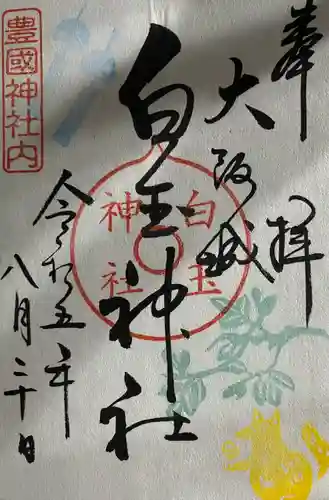 奉拝
大阪城
白玉神社
令和五年
八月三十日
豊國神社内
白玉
神社